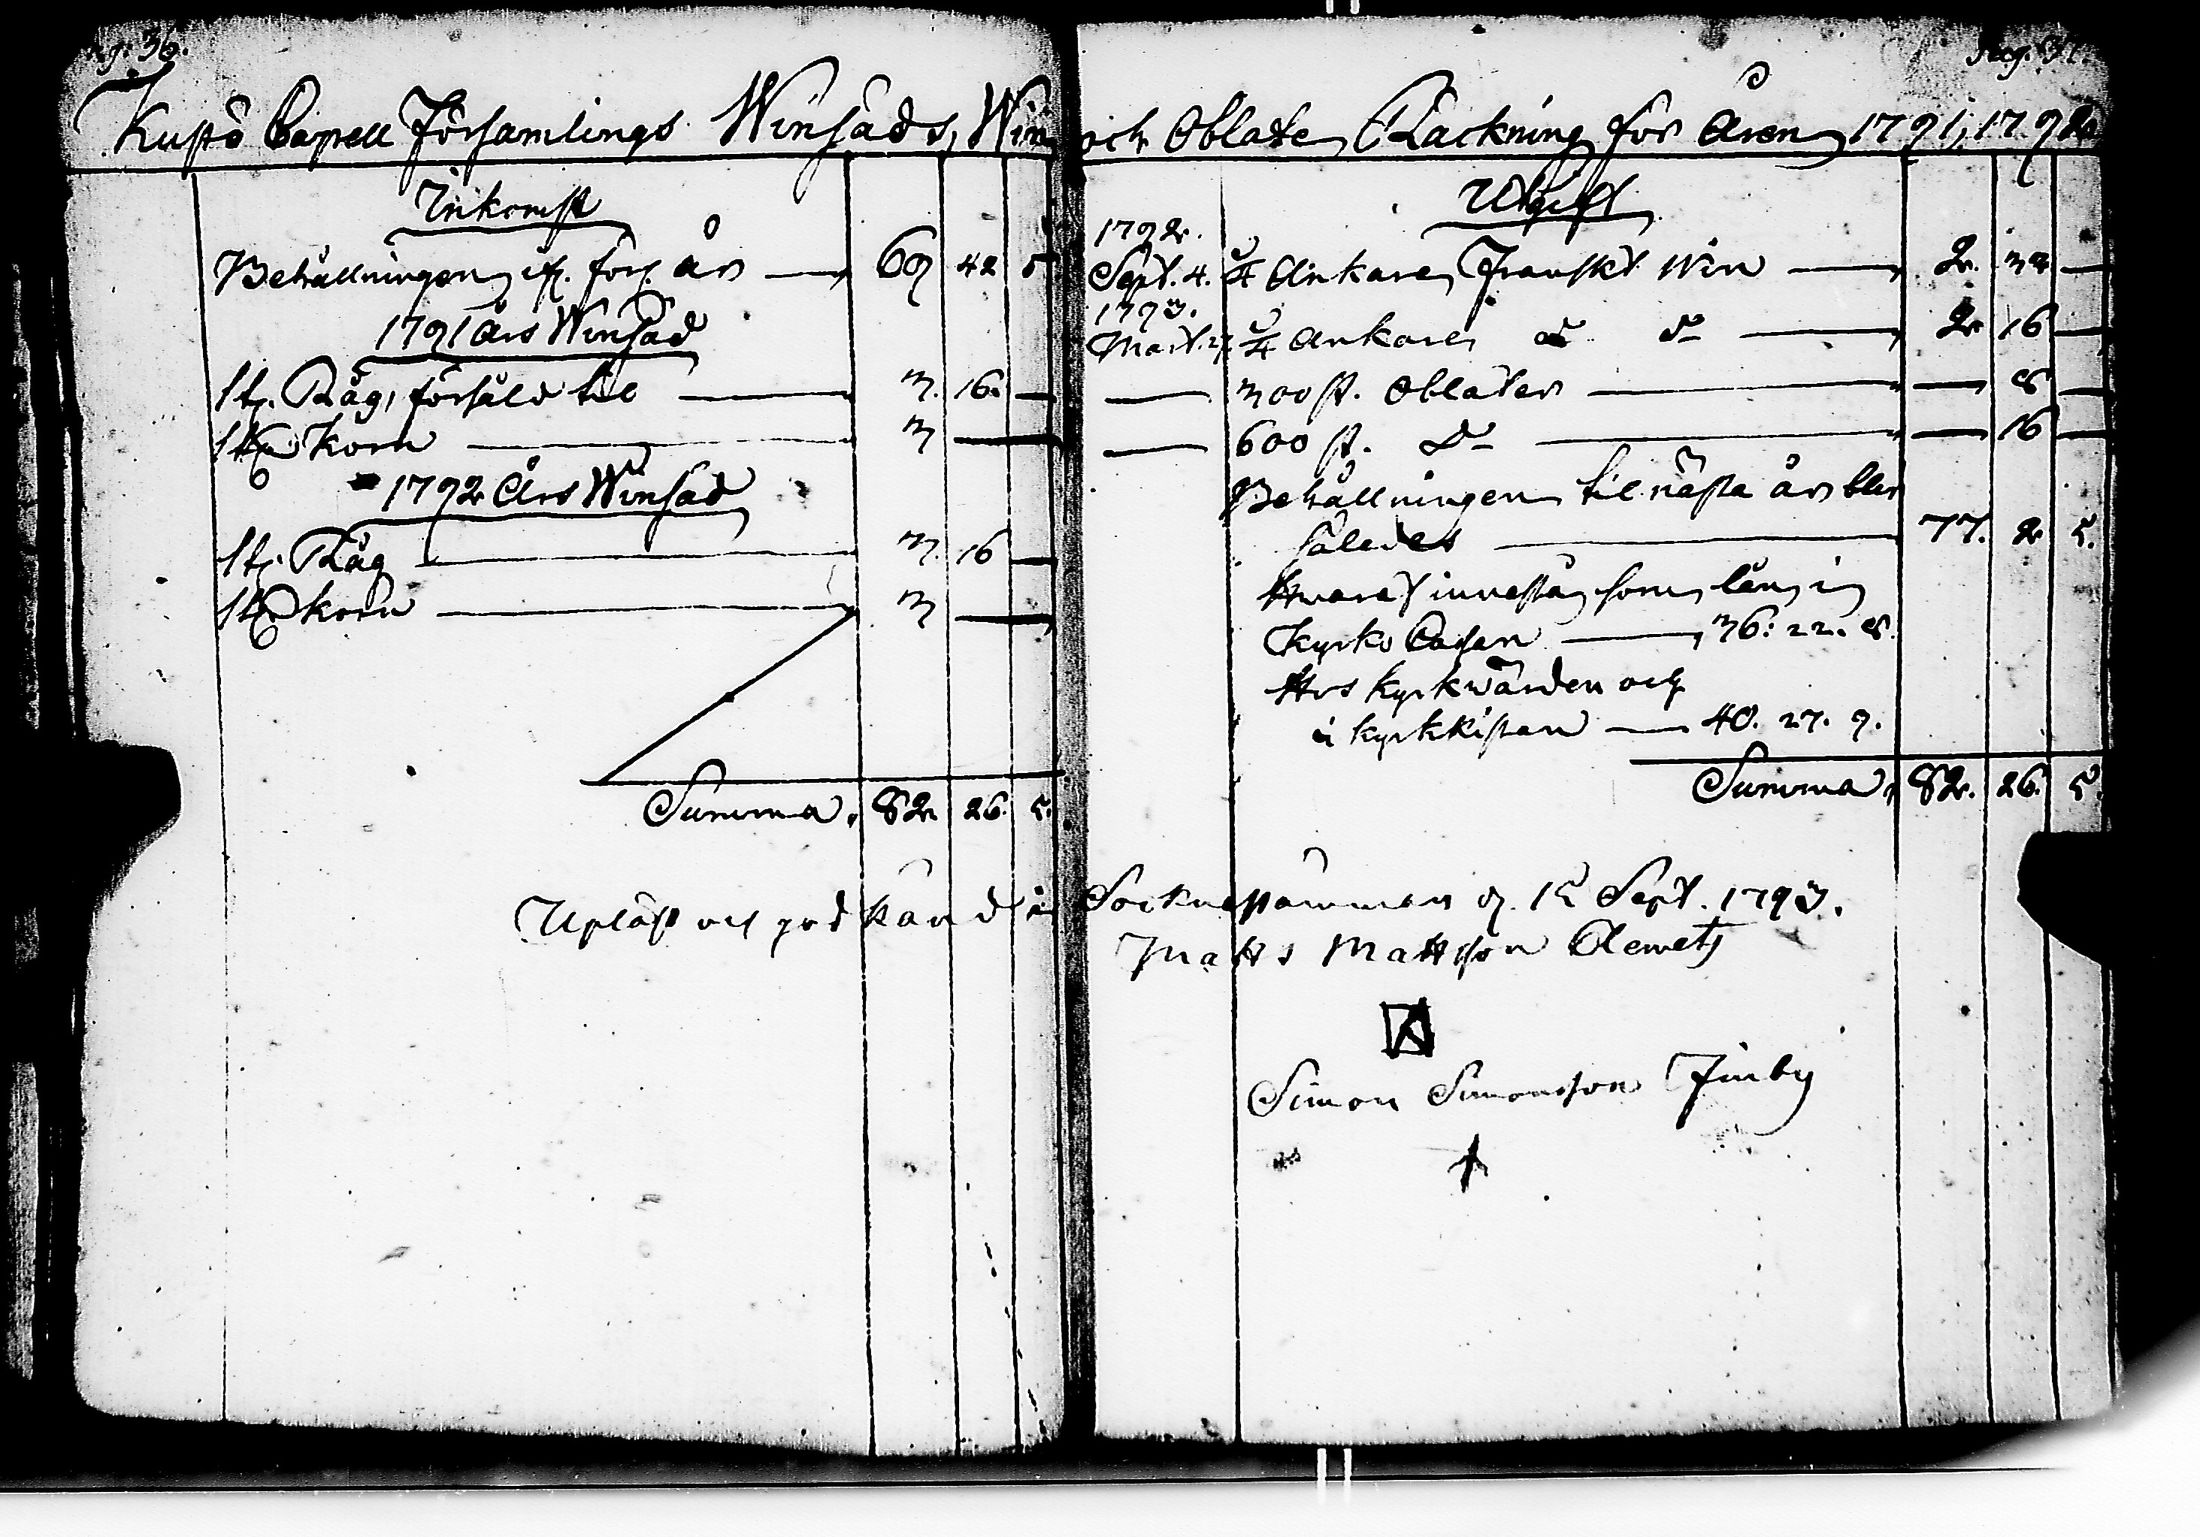 Pag. 36.
Kustö Capell Församlings Winsäds, Win
Inkomst
Behållningen ifr. förr. år — 69 42 5
1791 års Winsäd
1 t. Råg, försåld til — 3. 16. —
1 t. Korn — 3 —
1792 Års Winsäd
1 t. Råg — 3. 16 —
1 t. Korn — 3 —
Summa. 82. 26. 5.
Upläst och godkänd i
Pag. 37.
och Oblate Räckning för Åren 1791, 1792
Utgift
1792.
Sept. 4. 3/4 Ankare Franskt Win — 2. 32 —
1793.
Mart. 27. 3/4 Ankare do do — 2 16 —
— 300 st. Oblater — — 8 —
— 600 st. do — — 16 —
Behållningen til nästa år blir
således — 77. 2 5.
Hvaraf innestå som lån i
Kyrko Cassan — 36: 22. 8.
Hos Kyrkvärden och
i kyrkkistan — 40. 27. 9.
Summa. 82. 26. 5.
Socknestämman d. 15 Sept. 1793.
Matts Mattsson Clemets
Simon Simonsson Finby